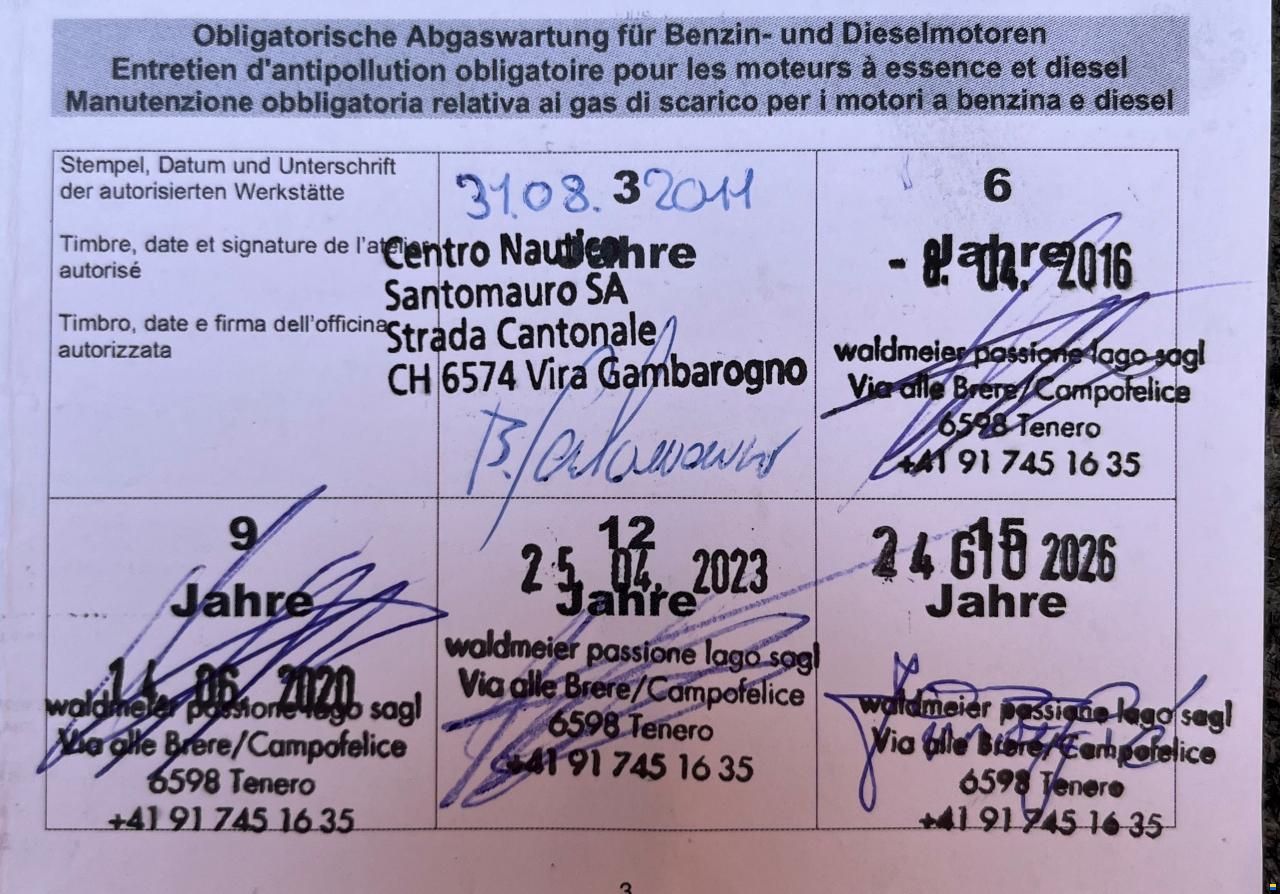 Obligatorische Abgaswartung für Benzin- und Dieselmotoren
Entretien d'antipollution obligatoire pour les moteurs à essence et diesel
Manutenzione obbligatoria relativa ai gas di scarico per i motori a benzina e diesel
Stempel, Datum und Unterschrift
der autorisierten Werkstätte
Timbre, date et signature de l'atelier
autorisé
Timbro, date e firma dell'officina
autorizzata
3
Jahre
31.08. 2011
Centro Nautico
Santomauro SA
Strada Cantonale
CH 6574 Vira Gambarogno
6
Jahre
- 8. 04. 2016
waldmeier passione lago sagl
Via alle Brere/Campofelice
6598 Tenero
+41 91 745 16 35
9
Jahre
14. 06. 2020
waldmeier passione lago sagl
Via alle Brere/Campofelice
6598 Tenero
+41 91 745 16 35
12
Jahre
25. 04. 2023
waldmeier passione lago sagl
Via alle Brere/Campofelice
6598 Tenero
+41 91 745 16 35
15
Jahre
24 GIU 2026
waldmeier passione lago sagl
Via alle Brere/Campofelice
6598 Tenero
+41 91 745 16 35
3